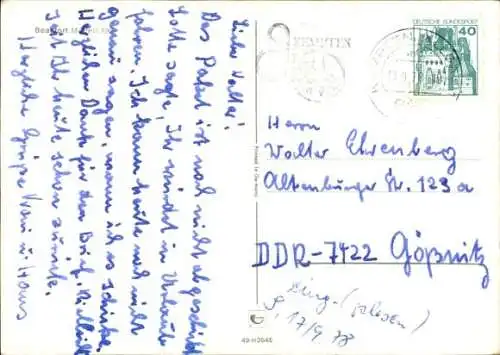 Liebe Walter!
Das Paket ist noch nicht abgeschickt
Lotte sagte, Ihr würdet in Urlaub
fahren. Ich kann heute noch nicht
genau sagen, wann ich es schicke.
Herzlichen Dank für den Brief. Vielleicht
seid Ihr heute schon zurück.
Herzliche Grüße
u. Hans
KEMPTEN
DEUTSCHE BUNDESPOST
40
Herrn
Walter Ehrenberg
Altenburger Str. 123a
DDR-7422 Gößnitz
Eing. (gelesen)
17/9 78
Printed in Germany